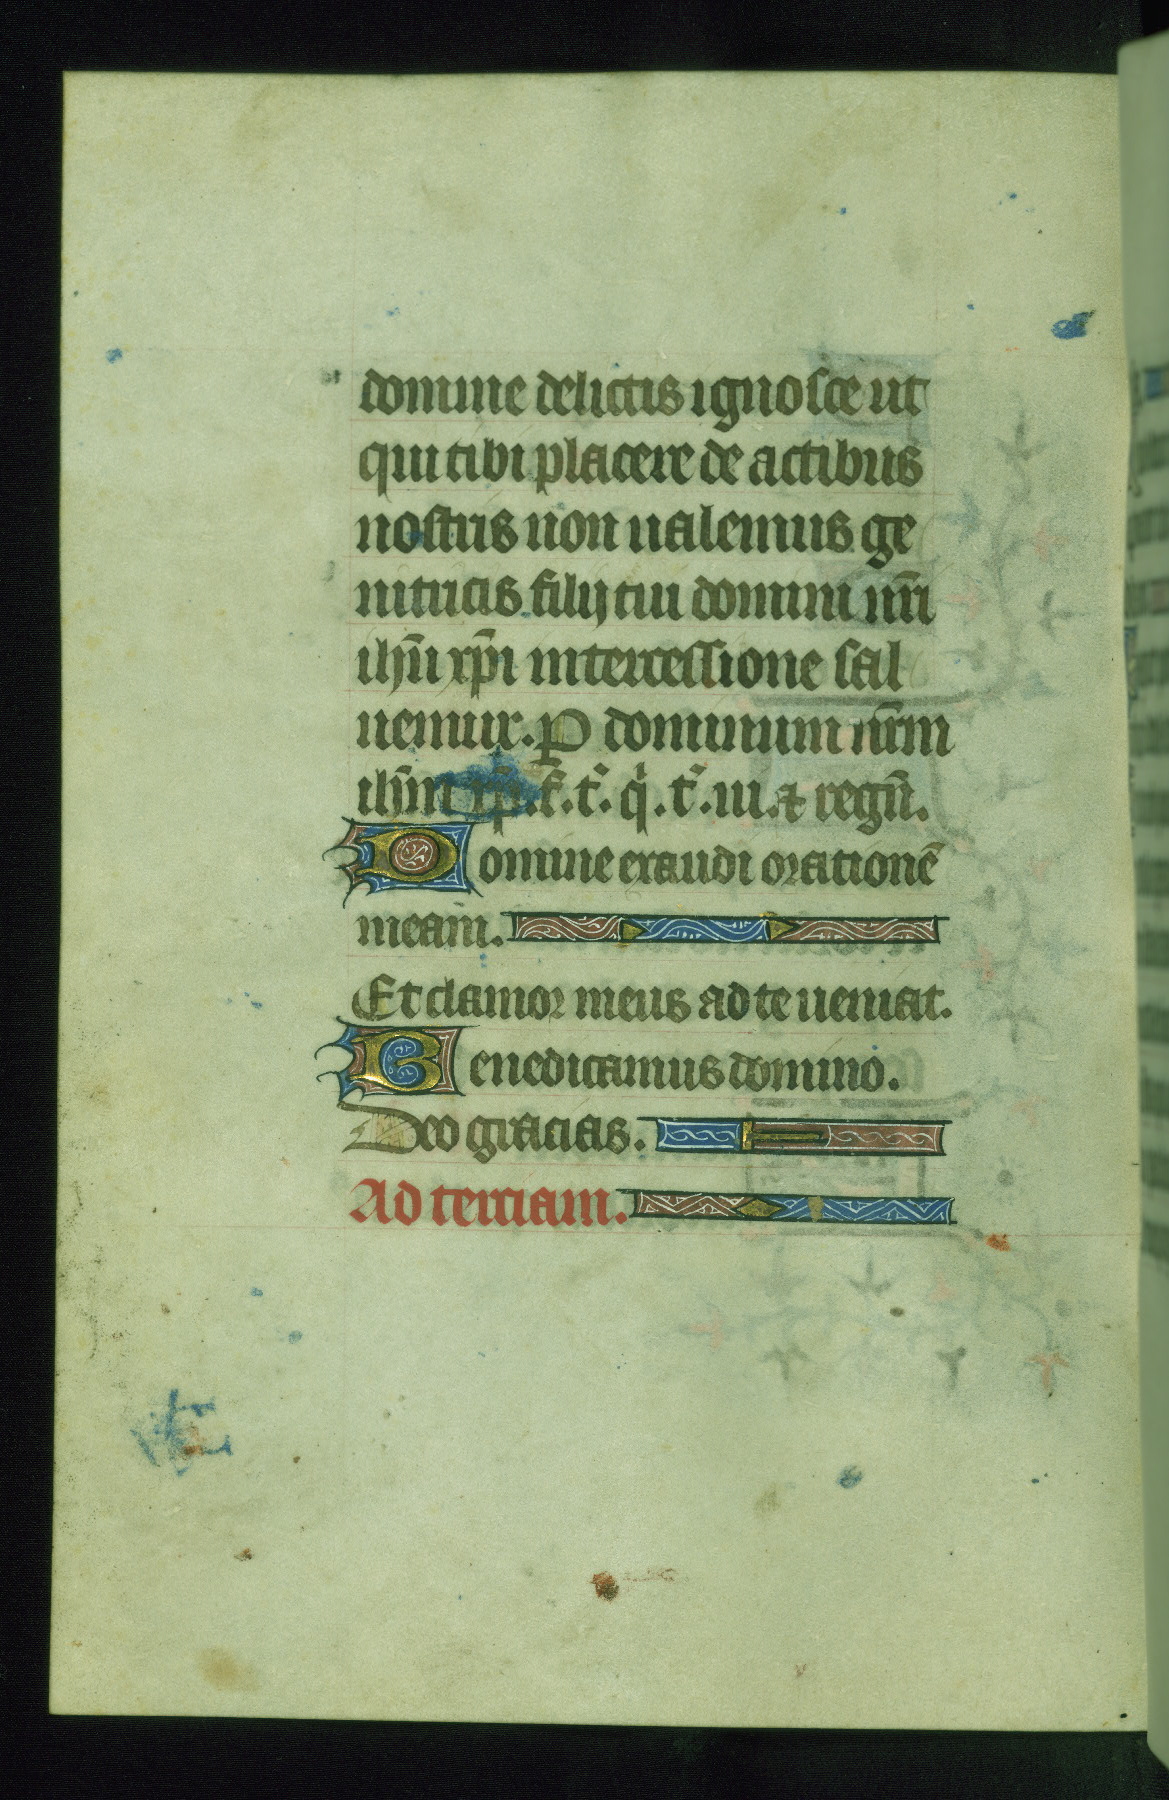 domine delictis ignosce ut
qui tibi placere de actibus
nostris non ualemus ge
nitricis filij tui domini nr̄i
ihū xp̄i intercessione sal
uemur. P domnium nr̄m
ihm̄ xp̄i. k̄. t̄. q̇. t̄. iii. ⁊ regn̄.
Domine exaudi orationē
meam.
Et clamor meus ad te ueniat.
Benedicamus domino.
Deo gracias.
Ad terciam.